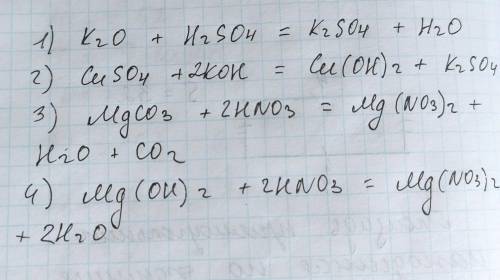 1) K2O + H2SO4 = K2SO4 + H2O
2) CuSO4 + 2KOH = Cu(OH)2 + K2SO4
3) MgCO3 + 2HNO3 = Mg(NO3)2 +
H2O + CO2
4) Mg(OH)2 + 2HNO3 = Mg(NO3)2
+ 2H2O